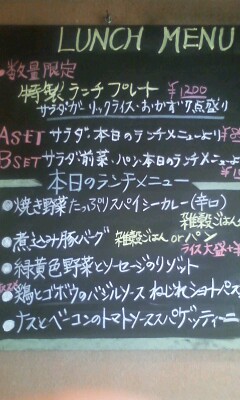 LUNCH MENU
●数量限定
特製 ランチプレート ¥1200
サラダ・ガーリックライス・おかず7点盛り
ASET サラダ・本日のランチメニューより
BSET サラダ前菜、パン・本日のランチメニューより
本日のランチメニュー
●焼き野菜たっぷりスパイシーカレー(辛口)
雑穀ごはん
●煮込み豚バーグ 雑穀ごはん or パン
ライス大盛+
●緑黄色野菜とソーセージのリゾット
●鶏とゴボウのバジルソース ねじれショートパス
●ナスとベーコンのトマトソーススパゲッティーニ